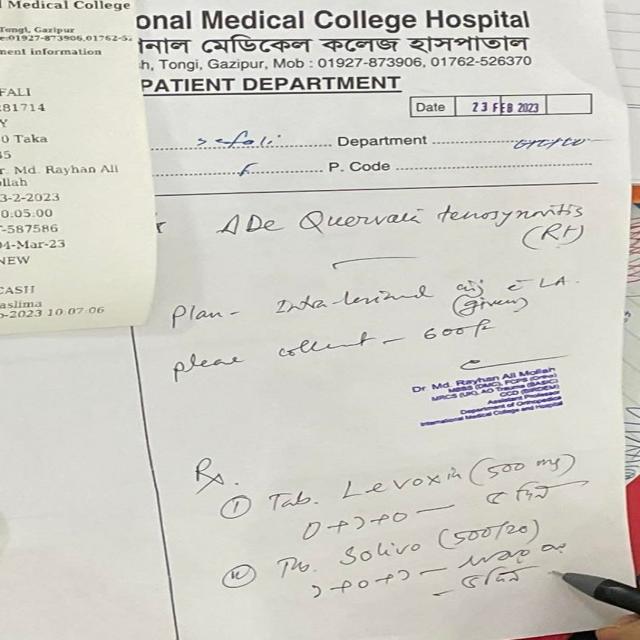 l Medical College
Tongi, Gazipur
e:01927-873906,01762-52
ment information
FALI
281714
Y
0 Taka
45
r. Md. Rayhan Ali
ollah
3-2-2023
0:05:00
-587586
04-Mar-23
NEW
CASH
aslima
-2023 10:07:06
onal Medical College Hospital
নাল মেডিকেল কলেজ হাসপাতাল
h, Tongi, Gazipur, Mob : 01927-873906, 01762-526370
PATIENT DEPARTMENT
Date 23 FEB 2023
Sefali Department
F P. Code
De Quervain tenosynovitis
(Rt)
Plan - Intra-lesional inj c LA.
(given)
please collect - 600/=
Dr. Md. Rayhan Ali Mollah
MBBS (DMC), FCPS (Ortho)
MRCS (UK), AO Trauma (BASIC)
CCD (BIRDEM)
Assistant Professor
Department of Orthopedics
International Medical College and Hospital
Rx.
① Tab. Levoxin (500 mg)
0+1+0 — ৫ দিন
② Tab. Solivo (500/20)
১+০+১ —
- ৫ দিন